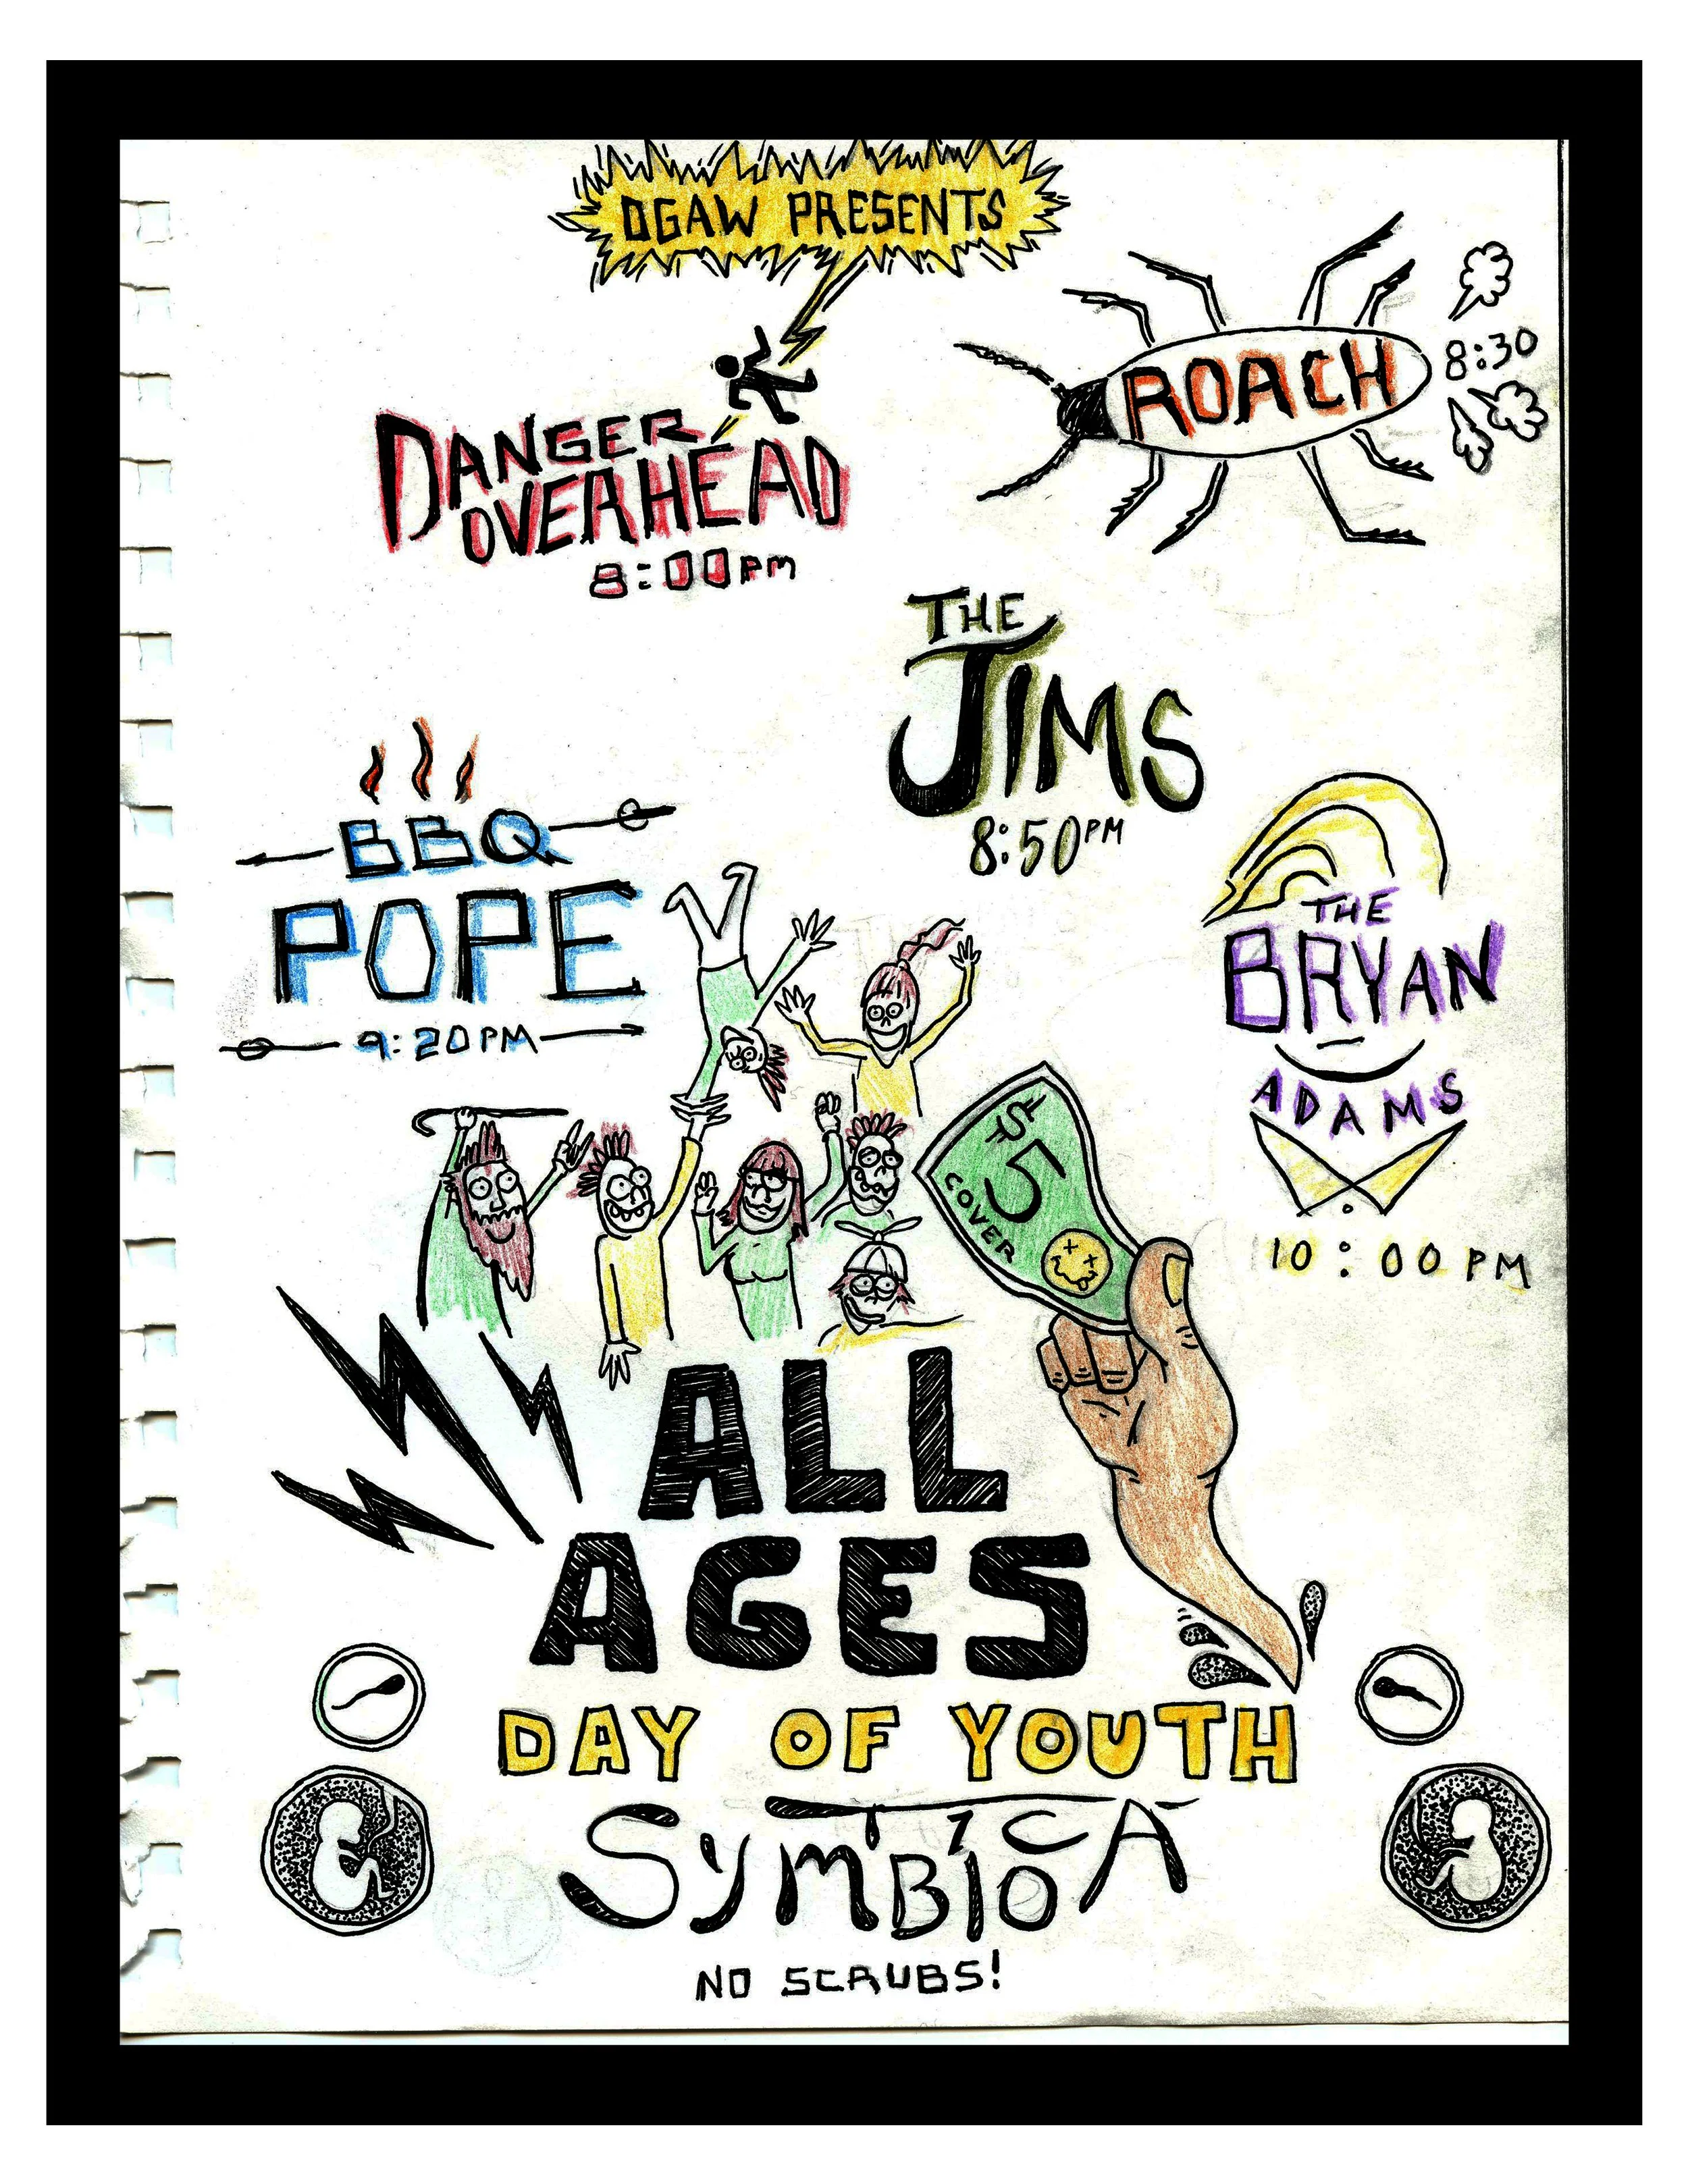 OGAW PRESENTS
DANGER
OVERHEAD
8:00PM
ROACH
8:30
THE
JIMS
8:50PM
BBQ
POPE
9:20PM
THE
BRYAN
ADAMS
10:00PM
$5
COVER
ALL
AGES
DAY OF YOUTH
SYMBIOTICA
NO SCRUBS!